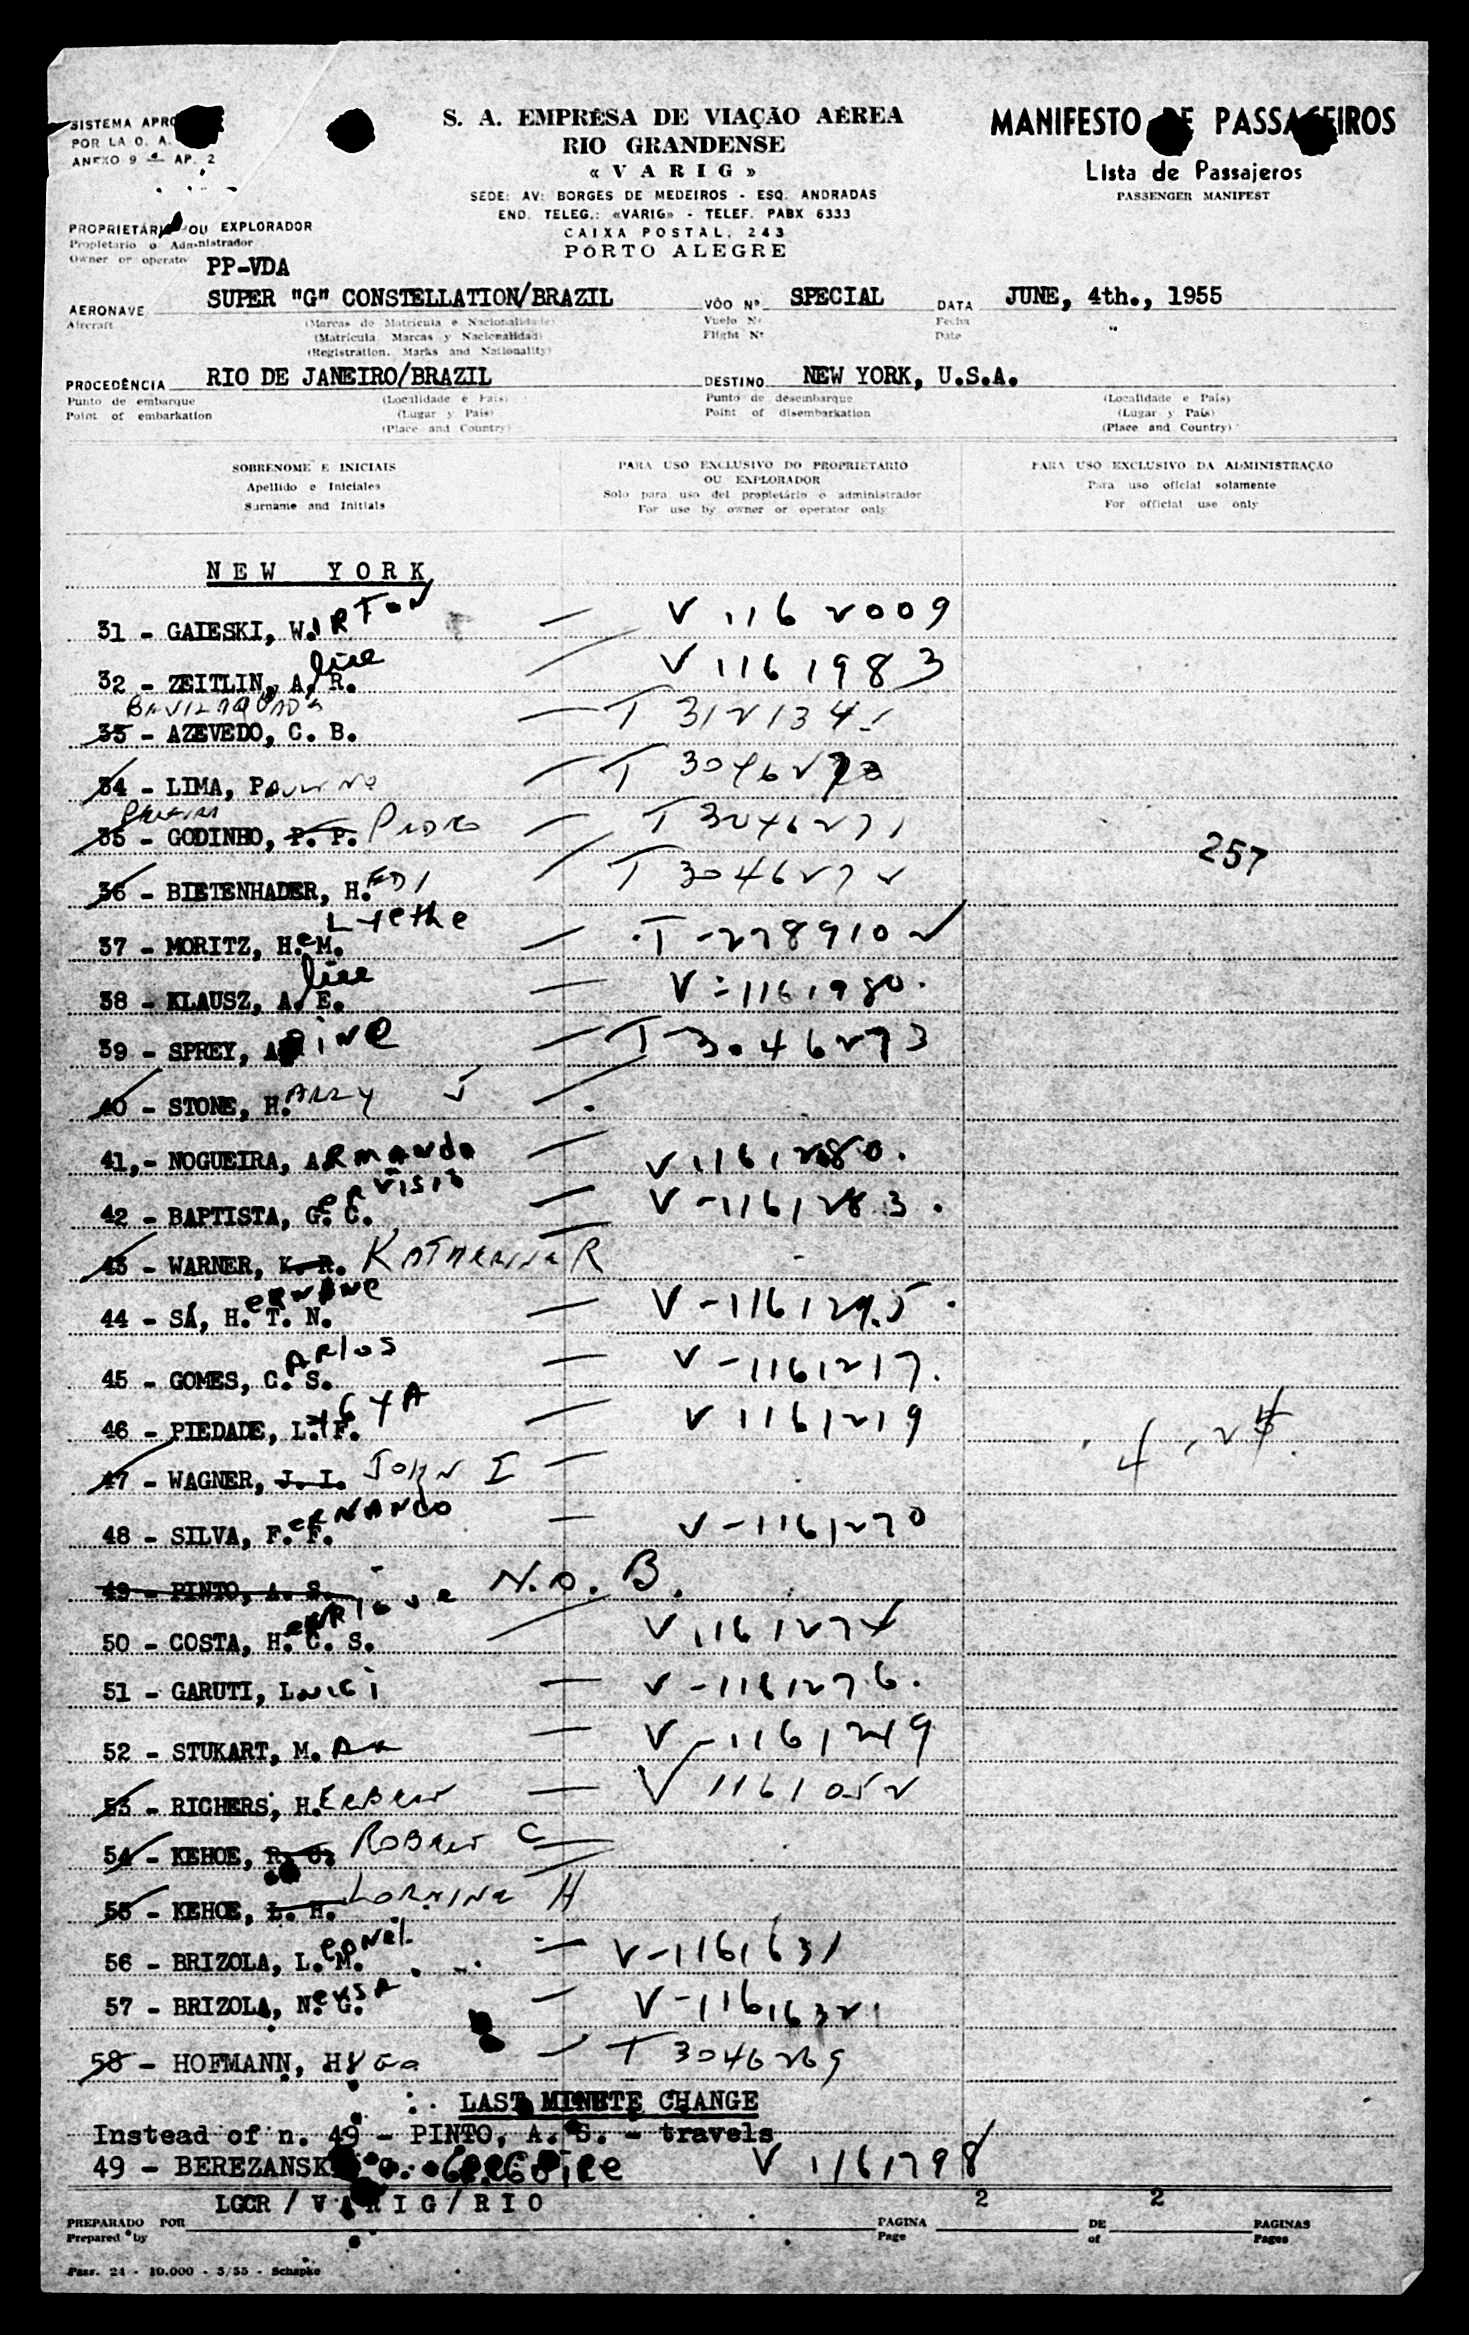 SISTEMA APRO
POR LA O. A.
ANEXO 9 - AP. 2
S. A. EMPRÊSA DE VIAÇÃO AÉREA
RIO GRANDENSE
« V A R I G »
SEDE: AV: BORGES DE MEDEIROS - ESQ. ANDRADAS
END. TELEG.: «VARIG» - TELEF. PABX 6333
CAIXA POSTAL, 243
PÔRTO ALEGRE
MANIFESTO DE PASSAGEIROS
Lista de Pasajeros
PASSENGER MANIFEST
PROPRIETÁRIO OU EXPLORADOR
Propietario o Administrador
Owner or operator
PP-VDA
AERONAVE SUPER "G" CONSTELLATION/BRAZIL VÔO Nº SPECIAL DATA JUNE, 4th., 1955
Aircraft (Marcas de Matrícula e Nacionalidade) Vuelo Nº Fecha
(Matrícula Marcas y Nacionalidad) Flight Nº Date
(Registration, Marks and Nationality)
PROCEDÊNCIA RIO DE JANEIRO/BRAZIL DESTINO NEW YORK, U.S.A.
Punto de embarque (Localidade e País) Punto de desembarque (Localidade e País)
Point of embarkation (Lugar y País) Point of disembarkation (Lugar y País)
(Place and Country) (Place and Country)
SOBRENOME E INICIAIS PARA USO EXCLUSIVO DO PROPRIETÁRIO PARA USO EXCLUSIVO DA ADMINISTRAÇÃO
OU EXPLORADOR
Apellido e Iniciales Solo para uso del propietário o administrador Para uso oficial solamente
Surname and Initials For use by owner or operator only For official use only
NEW YORK
31 - GAIESKI, W.IRTON — V 1162009
32 - ZEITLIN, A. R. lice — V 1161983
BEVILAQUADA
33 - AZEVEDO, C. B. — T 312134
34 - LIMA, PAULINO — T
Pereira
35 - GODINHO, P. P. PEDRO — T 3046271 257
36 - BIETENHADER, H.EDI — T 3046272
37 - MORITZ, H. M. Lyethe — T-2789102
38 - KLAUSZ, A. E. lice — V-1161980.
39 - SPREY, A — T 3046273
40 - STONE, H.ARRY J —
41,- NOGUEIRA, ARMANDO — V 1161280.
42 - BAPTISTA, G. C. ERVISIO — V-1161283.
43 - WARNER, K. R. KATHERINE R —
44 - SÁ, H. T. N. ERNANE — V-1161295.
45 - GOMES, C. S. ARLOS — V-1161217.
46 - PIEDADE, L. F. IGYA — V 1161219
47 - WAGNER, J. I. JOHN I —
48 - SILVA, F. F. ERNANDO — V-1161270
49 - PINTO, A. S. N.O.B.
50 - COSTA, H. C. S. ENRIQUE — V 1161274
51 - GARUTI, LUIGI — V-1161276.
52 - STUKART, M. AX — V-1161249
53 - RICHERS, H.ERBERT — V 1161052
54 - KEHOE, R. C. ROBERT C —
55 - KEHOE, L. H. LORAINE H
56 - BRIZOLA, L. M. EONEL — V-1161631
57 - BRIZOLA, N. G. EUSA — V-1161632
58 - HOFMANN, HUGO — T 3046269
LAST MINUTE CHANGE
Instead of n. 49 - PINTO, A. S. - travels
49 - BEREZANSK V 1161798
LGCR / V A R I G / R I O 2 2
PREPARADO POR PAGINA DE PAGINAS
Prepared by Page of Pages
Pass. 24 - 10.000 - 3/55 - Schapke